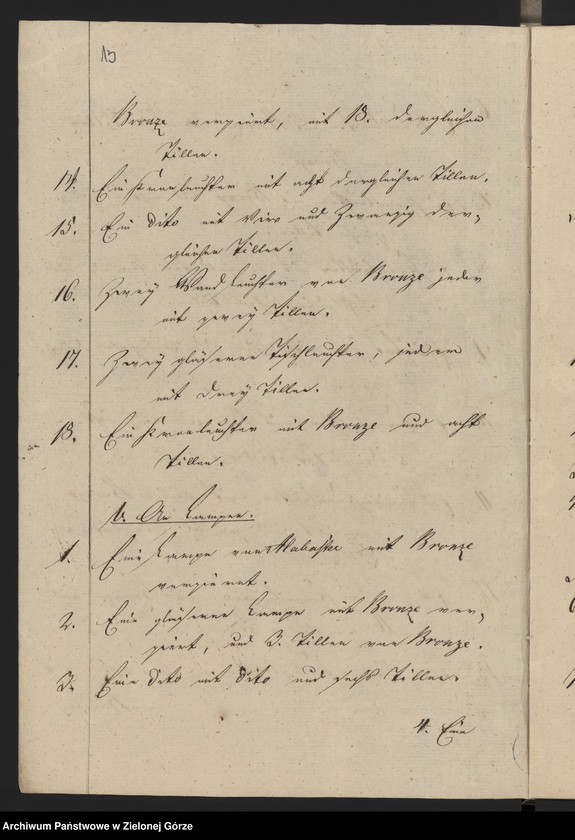 13
Bronze verziert, mit 18. dergleichen
Tillen.
14. Ein Kronleuchter mit acht dergleichen Tillen.
15. Ein dito mit Vier und Zwanzig der-
gleichen Tillen.
16. Zwey Wandleuchter von Bronze jeder
mit zwey Tillen.
17. Zwey gläserne Tischleuchter, jeder
mit drey Tillen.
18. Ein Kronleuchter mit Bronze und acht
Tillen.
An Lampen.
1. Eine Lampe von Alabaster mit Bronze
verzieret.
2. Eine gläserne Lampe mit Bronze ver-
ziert, und 3. Tillen von Bronze.
3. Eine dito mit dito und sechs Tillen.
4. Eine
Archiwum Państwowe w Zielonej Górze